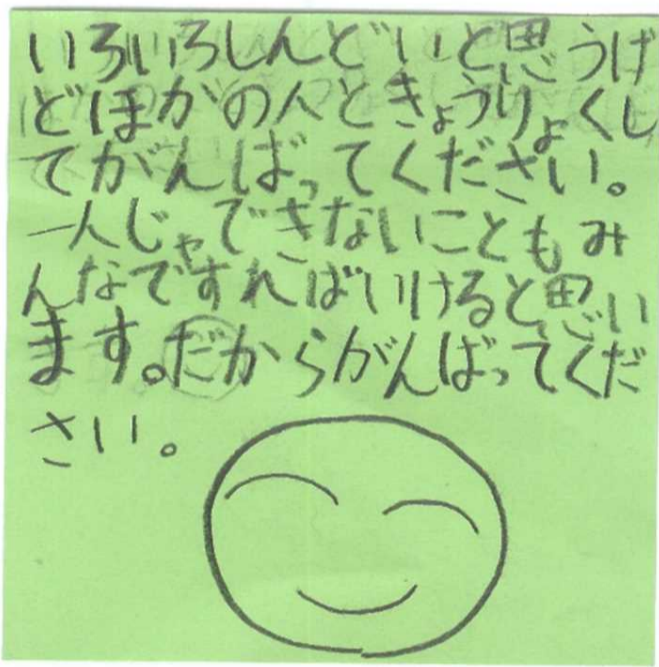 いろいろしんどいと思うけ
どほかの人ときょうりょくし
てがんばってください。
一人じゃできないこともみ
んなですればいけると思い
ます。だからがんばってくだ
さい。